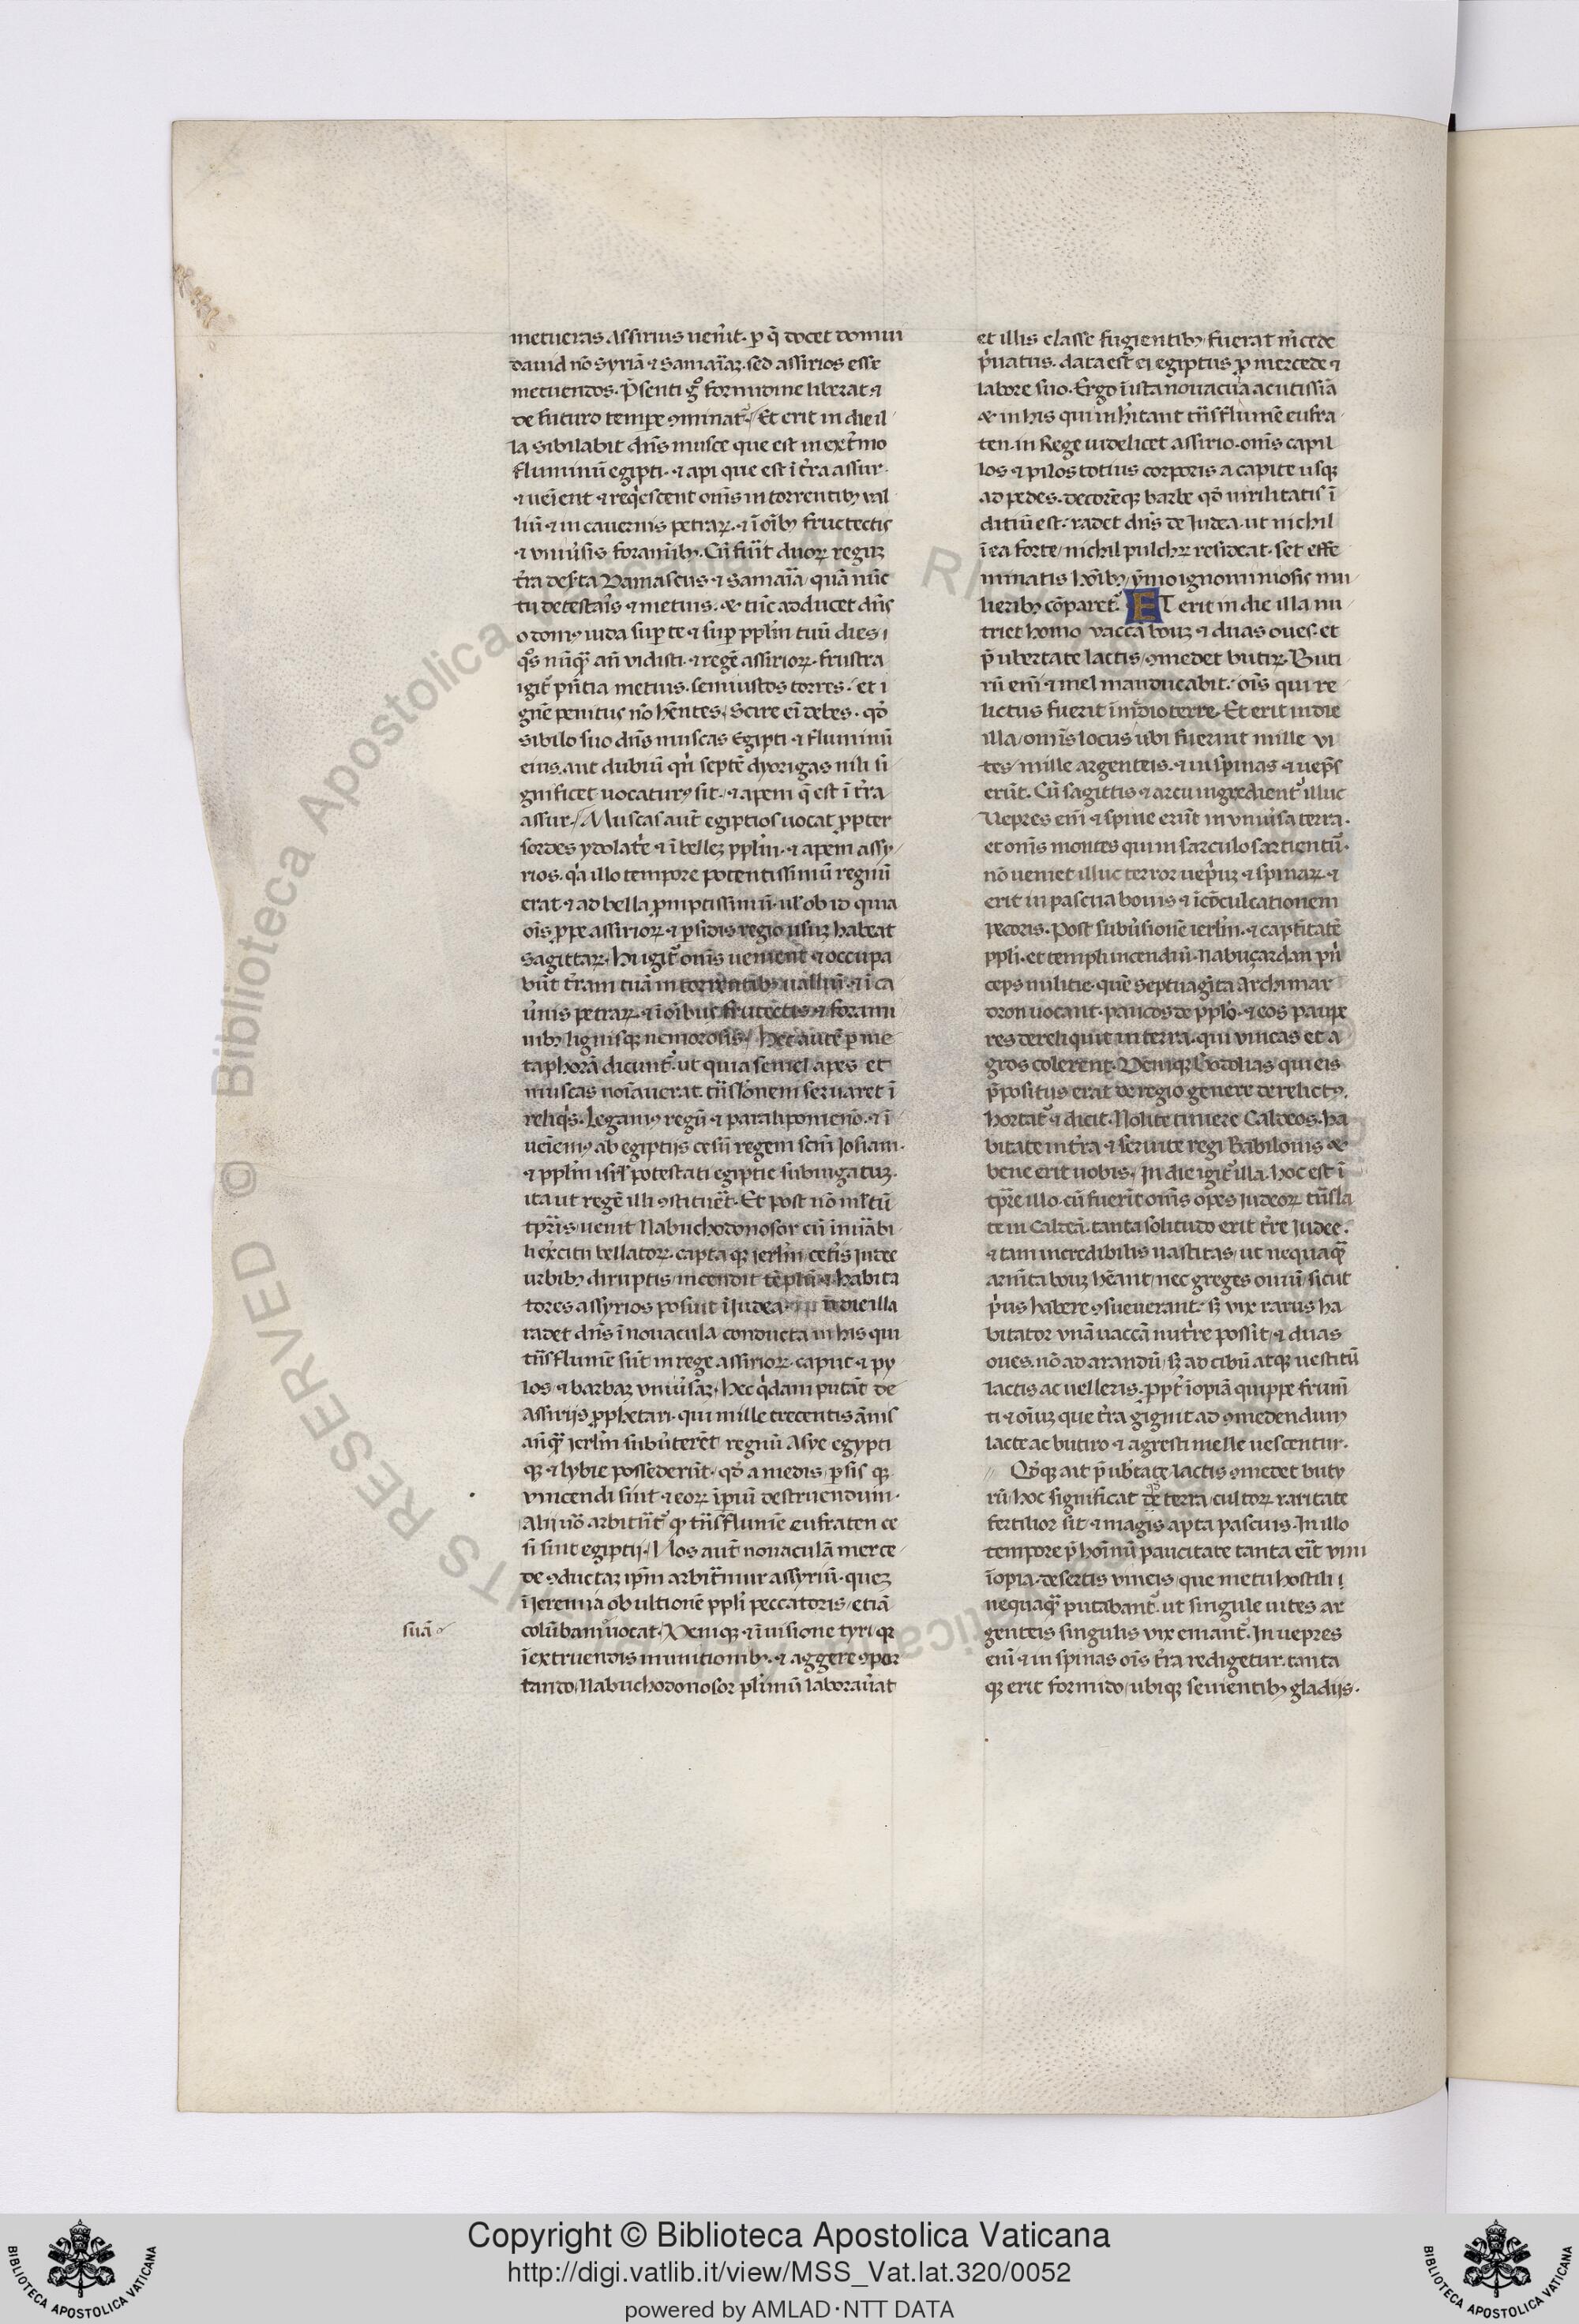 metueras assirius uen̄it. ꝑ q̄ docet domui
dauid nō syriā ⁊ samar̄iaꝫ. sed assirios esse
metuendos. P̄senti gͦ formidine liberat ⁊
de futuro tempe ꝯminat᷑. Et erit in die il
la sibilabit dn̄s musce que est in ext̄mo
fluminū egipti. ⁊ api que est ī t̄ra assur.
⁊ ueīent ⁊ reqͥescent om̄s in torrentibꝫ val
liū. ⁊ in cauernis petraꝝ. ⁊ ī oībꝫ fructectis
⁊ vniu̓sis foramībꝫ. Cū fūit duoꝝ regūꝫ
t̄ra des̓ta Damascus ⁊ samar̄ia quā nūc
tu detestar̄is ⁊ metuis. ⁊ tūc adducet dn̄s
o domꝰ iuda suꝑ te ⁊ suꝑ pplm̄ tuū dies
qͦs nūqͣꝫ an̄ vidisti. ⁊ regē assirioꝝ. frustra
igit᷑ pn̄tia metuis. semiustos torres. et i
gnē penitus nō hn̄tes. Scire em̄ debes. qđ
sibilo suo dn̄s muscas Egipti ⁊ fluminū
eius. aut dubiū qn̄ septē dyorigas nili si
gnificet uocaturꝰ sit. ⁊ apem q̄ est ī t̄ra
assur. Muscas aut̄ egiptios uocat ꝓpter
sordes ydolat̄e ⁊ ī belleꝫ pplm̄. ⁊ apem assy
rios. qͥa illo tempore potentissimū regnū
erat ⁊ ad bella promptissimū. ul̓ ob id quia
oīs prope assirioꝝ. ⁊ ꝑsidis regio usuꝫ habeat
sagittaꝝ. Hi igit᷑ om̄s uenient ⁊ occupa
būt t̄ram tuā in torrentibꝫ ualliū. ⁊ ī ca
u̓nis petraꝝ. ⁊ ī oībus frutectis ⁊ forami
nibꝫ lignisqꝫ nemorosis. Hec autē ꝑ me
taphorā dicunt᷑. ut quia semel apes et
muscas noīauerat. trn̄slōnem seruaret ī
reliqͥs. Legamꝰ regū ⁊ paralipomenō. ⁊ ī
ueīemꝰ ab egiptijs cesū regem scm̄ Josiam.
⁊ pplm̄ isrl̓ potestati egiptie subiugatuꝫ.
ita ut regē illi ꝯstituēt. Et post nō ml̓tū
tpr̄is uenit Nabuchodonosor cū īnūabi
li exc̓itu bellatoꝝ. captaqꝫ ierlm̄ cet̓is Judee
urbibꝫ diruptis incendit tēplū ⁊ habita
tores assyrios posuit ī Judea. in die illa
radet dn̄s ī nouacula conducta in his qui
trn̄s flumē sūt in rege assirioꝝ. caput ⁊ py
los ⁊ barbaꝫ vniu̓saꝫ. Hec qͥdam putāt de
assirijs prophetari. qui mille trecentis ānis
an̄qͣꝫ ierlm̄ subu̓terēt regnū Asye egypti
qꝫ ⁊ lybie possederūt. qđ a medis ꝑsis qꝫ
vincendi sint ⁊ eoꝝ īperiū destruendum.
Alij nō arbit̄nt᷑ ꝙ trn̄s flumē Eufraten ce
si sint egiptij. Nos aut̄ nouaculā merce
de ꝯductaꝫ ipm̄ arbitramur assyriū. queꝫ
ī Jeremia ob ultionē ppli peccatoris etiā
suā
colūbam uocat. Deniqꝫ ⁊ ī uisione tyri qꝫ
ī extruendis munitionibꝫ. ⁊ aggere ꝯpor
tando. Nabuchodonosor plm̄ū laborau̓at
et illis classe fugientibꝫ fuerat m̄cede
pͥuatus. data est ei egiptus ꝓ mercede ⁊
labore suo. Ergo ī ista nouacula acutissīa
⁊ in his qui inhītant trn̄s flumē eufra
ten. in Rege uidelicet assirio. om̄s capil
los ⁊ pilos totius corporis a capite usqꝫ
ad pedes. decorēqꝫ barbe qđ uirilitatis ī
ditiū est. radet dn̄s de Judea. ut nichil
ī ea forte nichil pulchꝝ resideat. set effe
minatis hoībꝫ ymo ignominiosis mu
lieribꝫ cōparet᷑. ET erit in die illa nu
triet homo vaccā bouꝫ ⁊ duas oues. et
p̄ ubertate lactis ꝯmedet butiꝝ. Buti
rū em̄ ⁊ mel manducabit. oīs qui re
lictus fuerit ī mēdio terre. Et erit in die
illa om̄s locus ubi fuerint mille vi
tes mille argenteis. ⁊ in spinas ⁊ uep̄s
erūt. Cū sagittis ⁊ arcu ingredient᷑ illuc
Uepres em̄ ⁊ spine erūt in vniu̓sa terra.
et om̄s montes qui in sarculo sartientū᷑.
nō ueniet illuc terror uep̄ꝫ ⁊ spinaꝝ. ⁊
erit in pascua bouis ⁊ ī cōculcationem
pecoris. Post subu̓sionē ierlm̄. ⁊ captīatē
ppli. et templi incendiū. Nabuçardan pͥn
ceps militie. quē septuagīta Archimar
oron uocant. paucos de pplo. ⁊ eos paupe
res dereliquit in terra. qui vineas et a
gros colerent. Deniqꝫ Godolias qui eis
p̄positus erat de regio genere derelictꝰ.
hortat᷑ ⁊ dicit. Nolite timere Caldeos. ha
bitate in t̄ra ⁊ seruite regi Babilonis ⁊
bene erit uobis. In die igit᷑ illa. hoc est ī
tpr̄e illo. cū fuerīt om̄s opes iudeoꝝ trn̄sla
te in Caldeā. tanta solitudo erit t̄re Judee.
⁊ tam incredibilis uastitas ut nequaqͣꝫ
armīta bouꝫ hēant nec greges ouiū sicut
pͥus habere ꝯsueuerant. sꝫ vix rarus ha
bitator vnā uaccā nut̓re possit. ⁊ duas
oues. nō ad arandū sꝫ ad cibū atqꝫ uestitū
lactis ac uelleris. ꝓpt̓ īopiā quippe frum̄
ti ⁊ oīuꝫ que t̄ra gignit ad ꝯmedendum
lacte ac butiro ⁊ agresti melle uescentur.
Qđqꝫ ait p̄ ub̓tate lactis ꝯmedet buty
rū hoc significat ꝙ terra cultoꝝ raritate
fertilior sit ⁊ magis apta pascuis. In illo
tempore p̄ hoīnū paucitate tanta erit vini
īopia. desertis vineis que metu hostili i
nequaqͣꝫ putabant᷑. ut singule uites ar
genteis singulis vix emant᷑. In uepres
em̄ ⁊ in spinas oīs t̄ra redigetur. tanta
qꝫ erit formido ubiqꝫ seuientibꝫ gladijs.
Copyright © Biblioteca Apostolica Vaticana
http://digi.vatlib.it/view/MSS_Vat.lat.320/0052
powered by AMLAD·NTT DATA